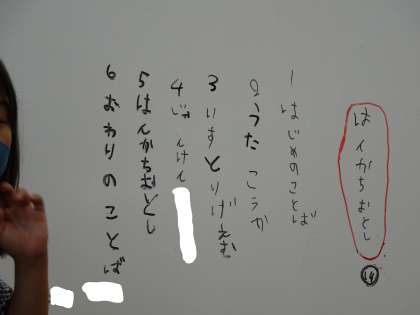 はんかちおとし
⑭
1 はじめのことば
2 うた こうか
3 いすとりげえむ
4 じゃんけん
5 はんかちおとし
6 おわりのことば